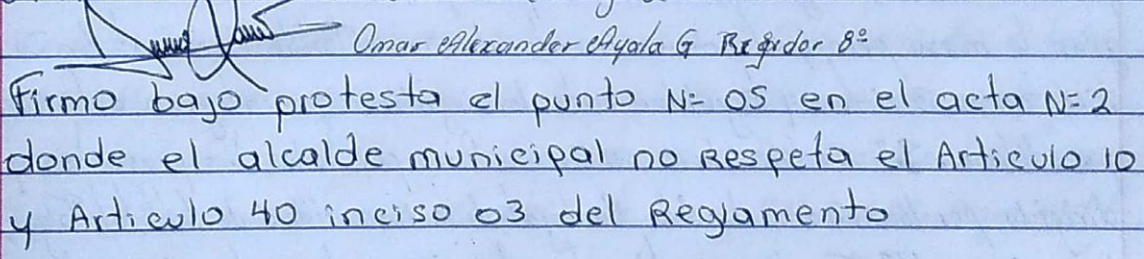 Omar Alexander Ayala G Regidor 8º
Firmo bajo protesta el punto N= 05 en el acta N=2
donde el alcalde municipal no Respeta el Articulo 10
y Articulo 40 inciso 03 del Reglamento